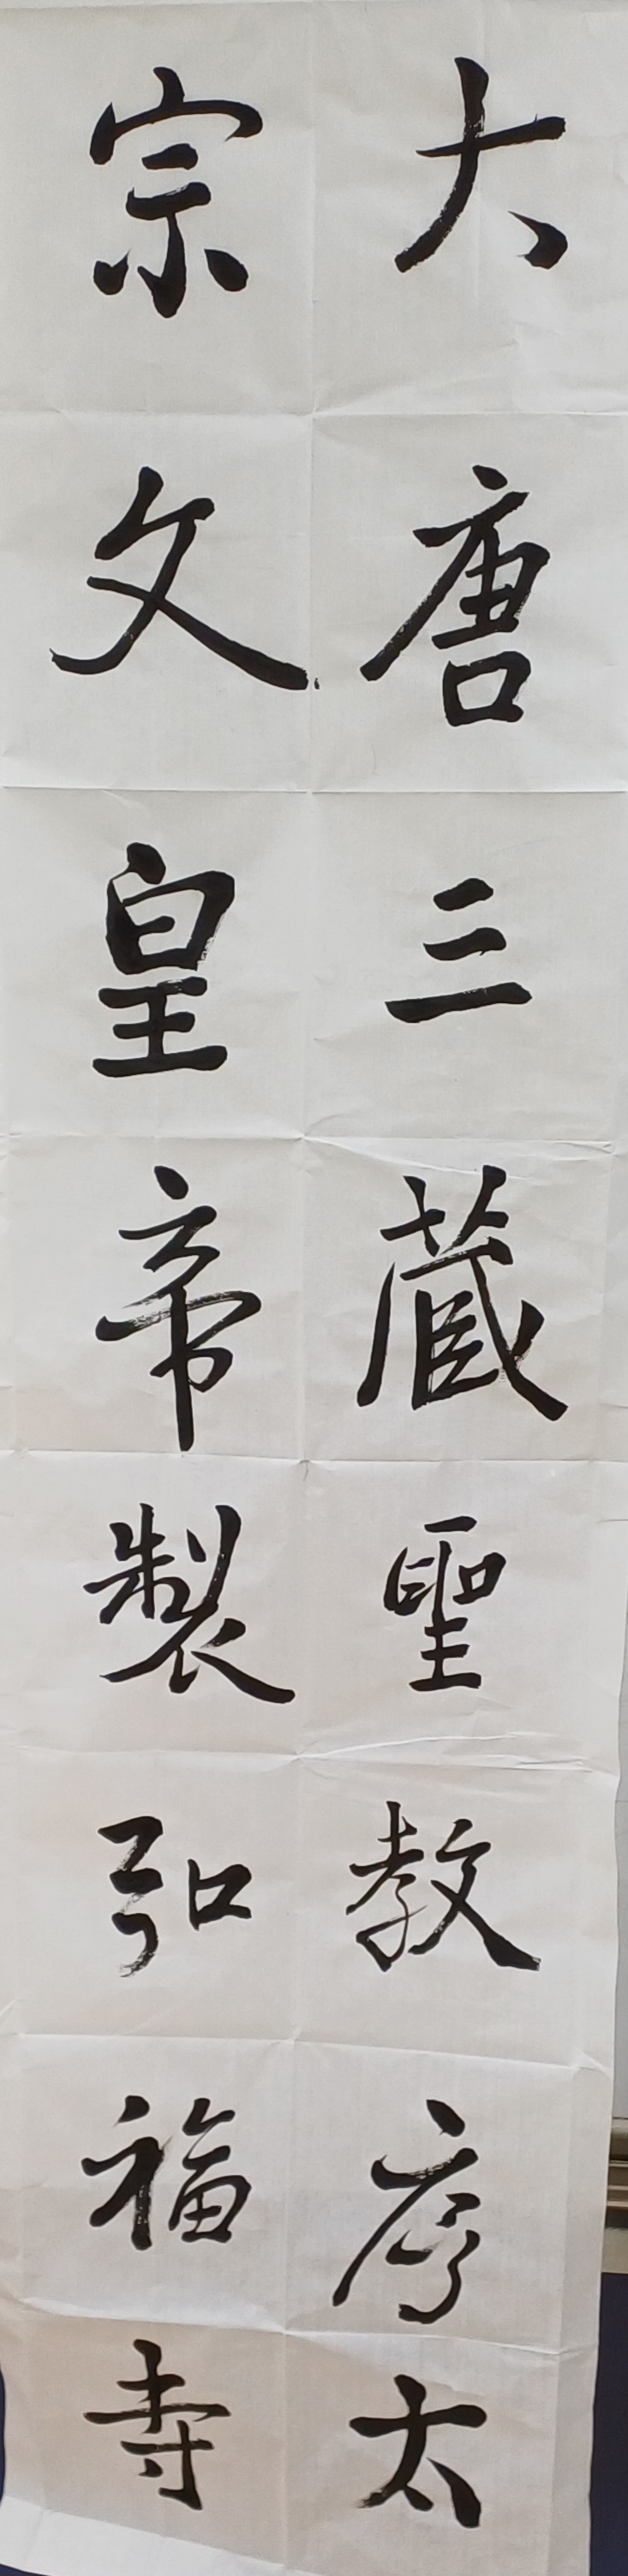 大唐三藏聖教序太
宗文皇帝製弘福寺